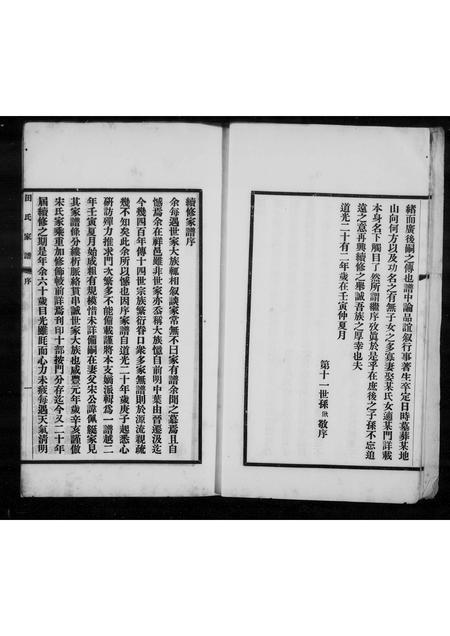 緒而廣後嗣之傳也譜中論品誼叙行事著生卒定日時墓葬某地
山向何方以及功名之有無子女之多寡妻娶某氏女適某門詳載
本身名下觸目了然所謂繼序攷眞於是乎在庶後之子孫不忘追
遠之意再興續修之舉誠吾族之厚幸也夫
道光二十有二年歲在壬寅仲夏月
第十一世孫 敬序
續修家譜序
余每遇世家大族輒相叙談家常無不曰家有譜余聞之羣焉且自
憾焉余在祥邑雖非世家亦忝稱大族憶自前明中葉由晉遷汲迄
今幾四百年傳十四世宗族繁衍眷口衆多家無譜則於源流視疏
幾不知矣此余所以憾也因序家譜自道光二十年歲庚子起悉心
硏訪殫力推求門次繁多不能備載謹將本支嫡派輯爲一譜越二
年壬寅夏月始成粗有規模惜未詳備嗣在妻父宋公諱佩鋌家見
其家譜條分縷析脈絡貫串誠世家大族也咸豐元年歲辛亥謹倣
宋氏家乘重加修飾較前詳焉刊印十部按門分存迄今又二十年
屆續修之期是年余六十歲目光雖眊而心力未疲每遇天氣清明
田氏家譜 序 一